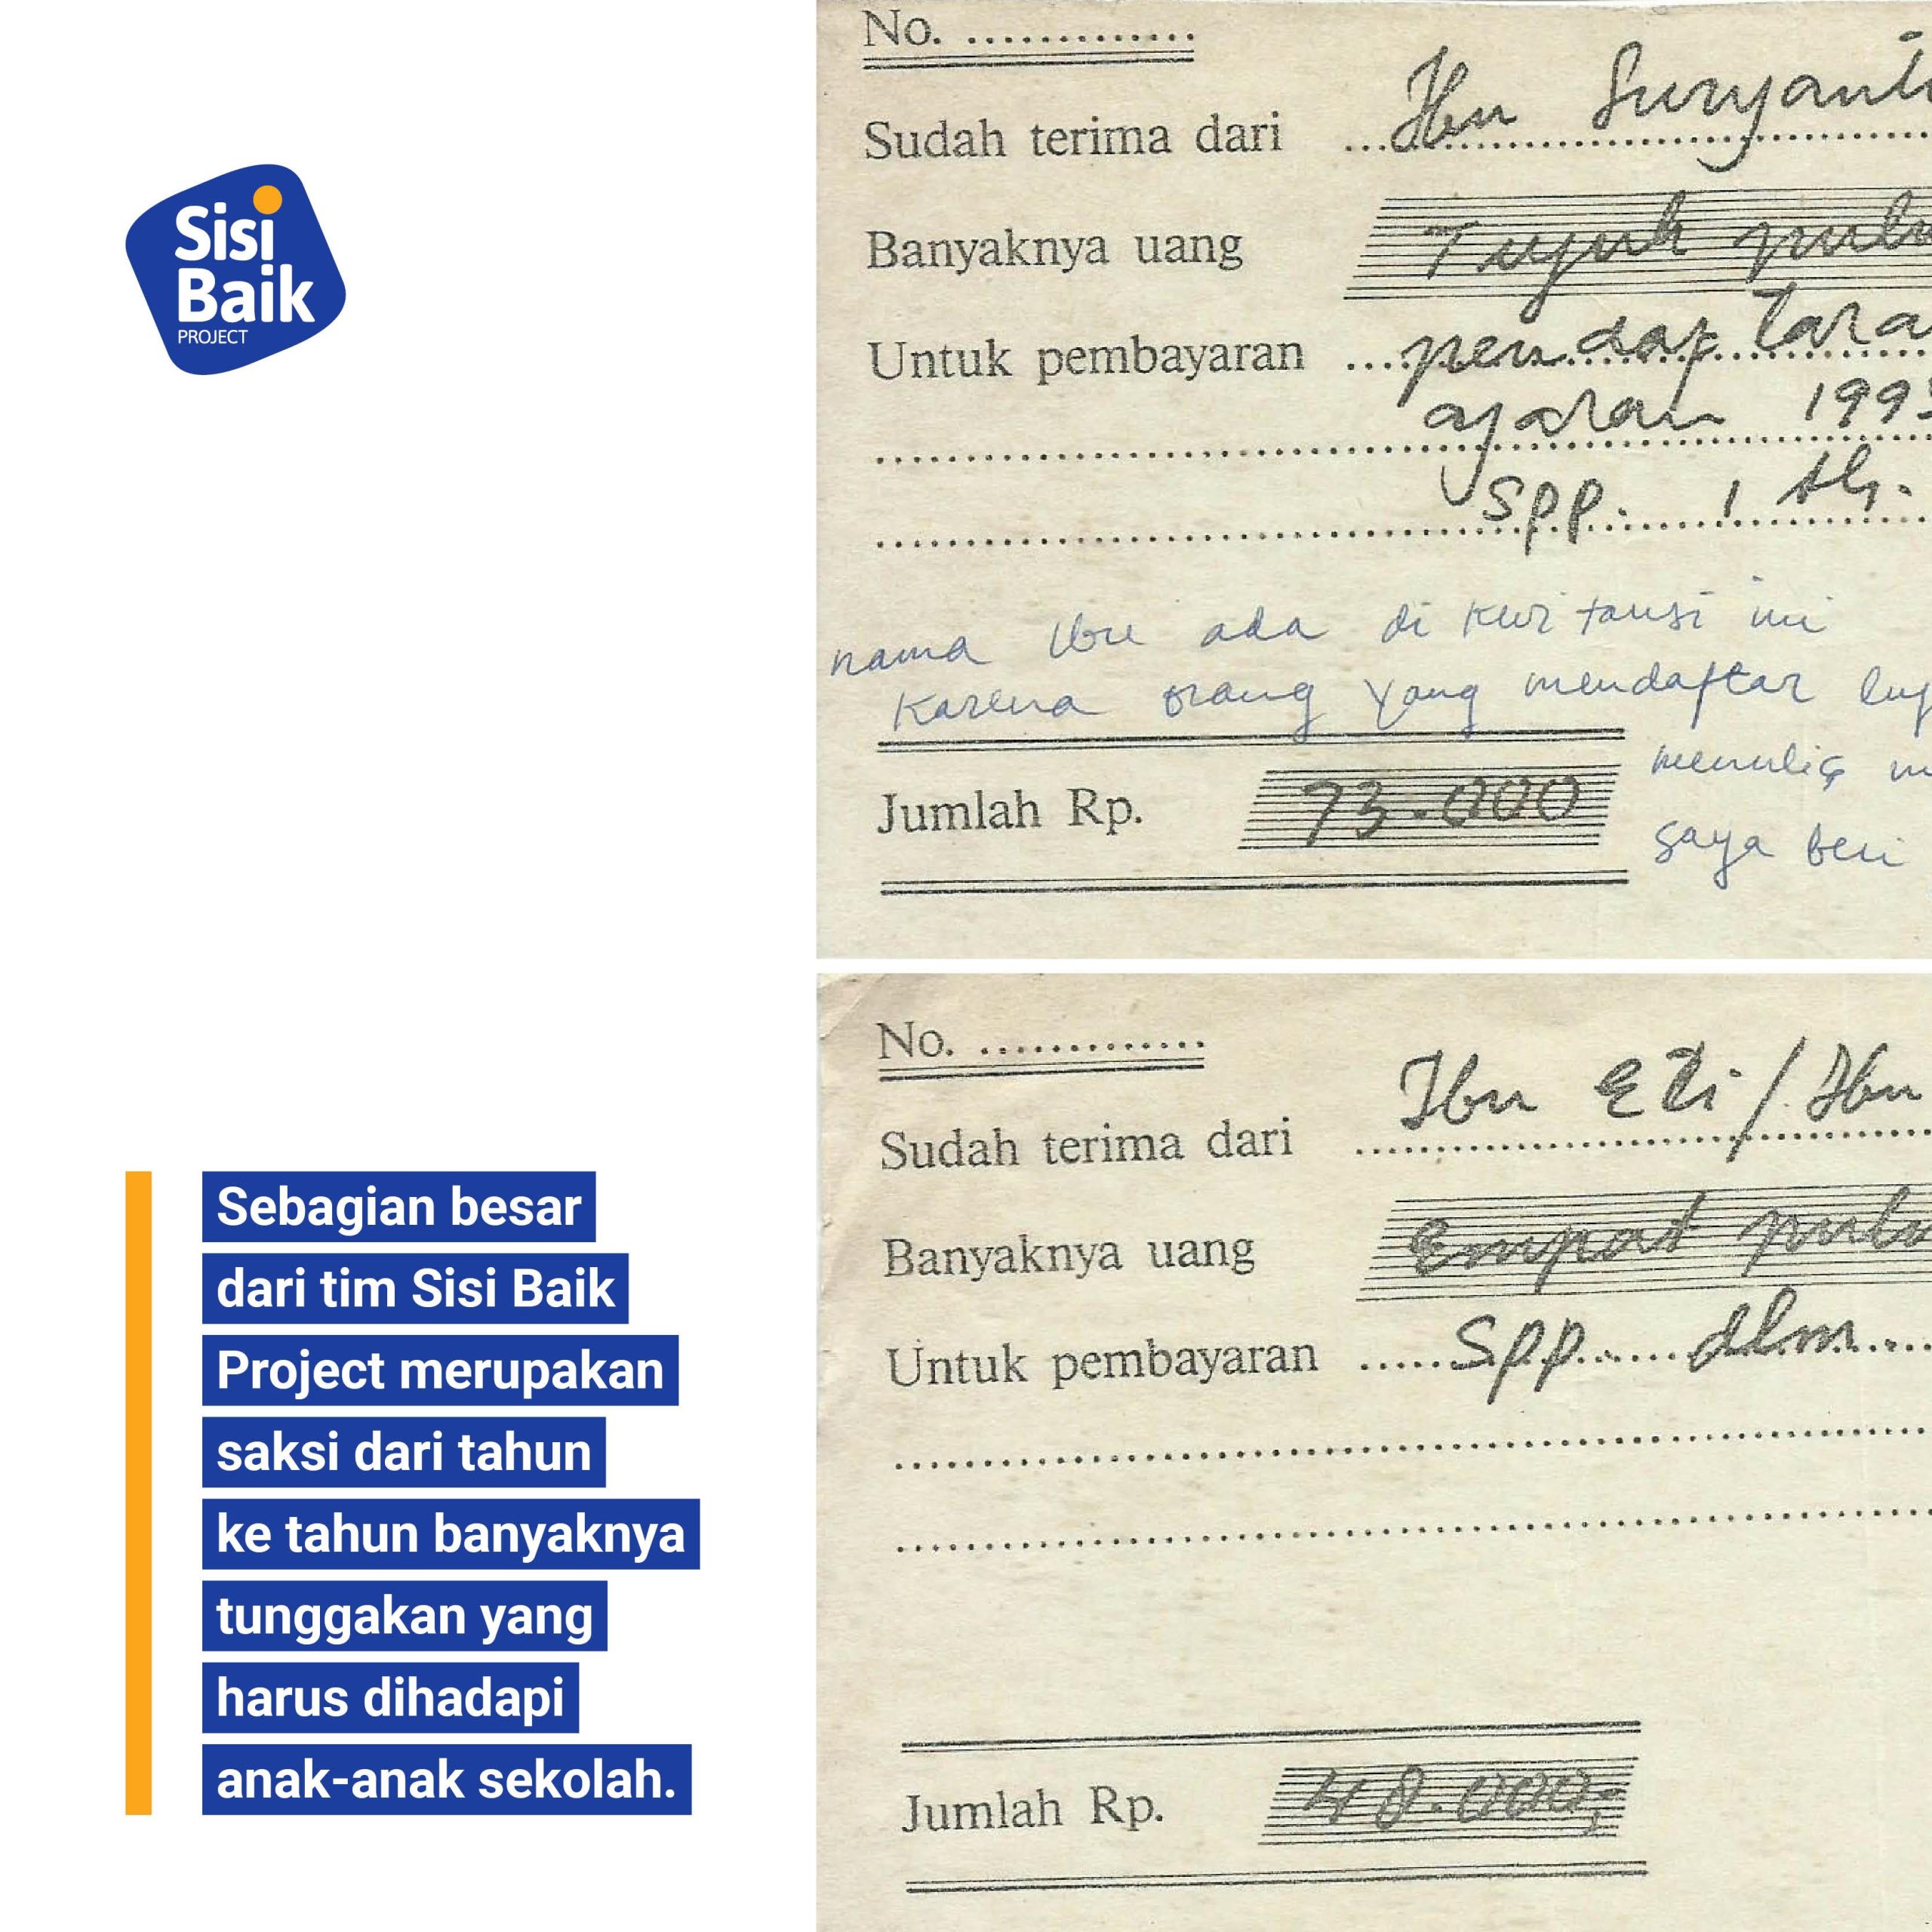 Sisi
Baik
PROJECT
Sebagian besar
dari tim Sisi Baik
Project merupakan
saksi dari tahun
ke tahun banyaknya
tunggakan yang
harus dihadapi
anak-anak sekolah.
No. ..............
Sudah terima dari Ibu Suryanti
Banyaknya uang Tujuh pulu
Untuk pembayaran pendaftara
ajaran 199
SPP. 1 th.
nama Ibu ada di kwitansi ini
karena orang yang mendaftar lup
menulis
Jumlah Rp. 73.000
saya beri
No. ..............
Sudah terima dari Ibu Eti / Ibu
Banyaknya uang Empat pulu
Untuk pembayaran SPP dlm
Jumlah Rp. 48.000,-